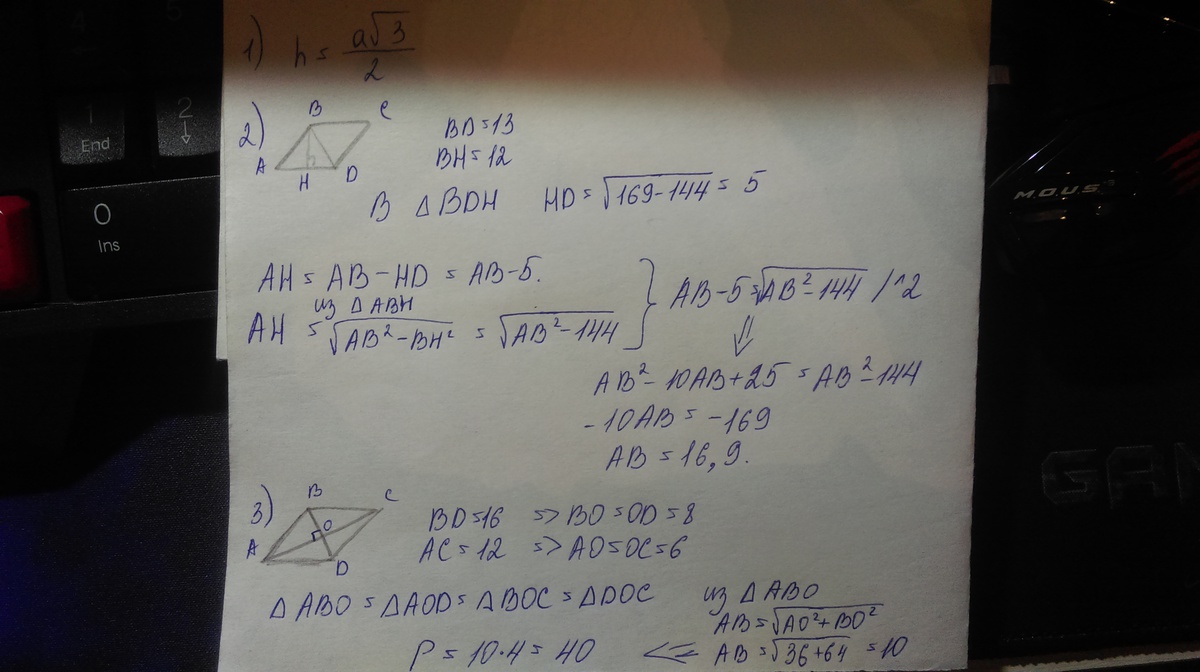 1) h = a√3 / 2
2)
B C
A H D
BD = 13
BH = 12
В △BDH HD = √169-144 = 5
AH = AB - HD = AB - 5.
из △ABH
AH = √AB²-BH² = √AB²-144
AB - 5 = √AB²-144 /^2
⇓
AB² - 10AB + 25 = AB² - 144
-10AB = -169
AB = 16,9.
3)
B C
O
A D
BD = 16 => BO = OD = 8
AC = 12 => AO = OC = 6
△ABO = △AOD = △BOC = △DOC
из △ABO
AB = √AO²+BO²
AB = √36+64 = 10
<=
P = 10·4 = 40
1
End
2
↓
0
Ins
M.O.U.S
GAM
4
5